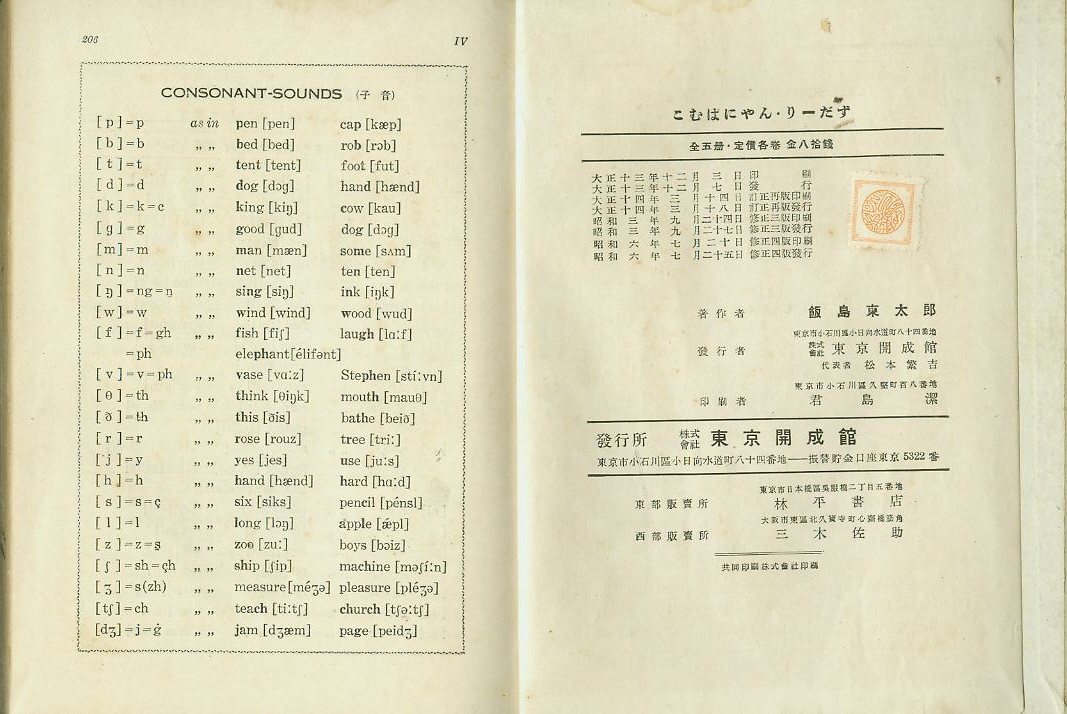 206
IV
CONSONANT-SOUNDS (子音)
[p]=p as in pen [pen] cap [kæp]
[b]=b „ „ bed [bed] rob [rɔb]
[t]=t „ „ tent [tent] foot [fut]
[d]=d „ „ dog [dɔg] hand [hænd]
[k]=k=c „ „ king [kiŋ] cow [kau]
[g]=g „ „ good [gud] dog [dɔg]
[m]=m „ „ man [mæn] some [sʌm]
[n]=n „ „ net [net] ten [ten]
[ŋ]=ng=ṉ „ „ sing [siŋ] ink [iŋk]
[w]=w „ „ wind [wind] wood [wud]
[f]=f=gh „ „ fish [fiʃ] laugh [lɑːf]
=ph elephant[élifənt]
[v]=v=ph „ „ vase [vɑːz] Stephen [stíːvn]
[θ]=th „ „ think [θiŋk] mouth [mauθ]
[ð]=th „ „ this [ðis] bathe [beið]
[r]=r „ „ rose [rouz] tree [triː]
[j]=y „ „ yes [jes] use [juːs]
[h]=h „ „ hand [hænd] hard [hɑːd]
[s]=s=ç „ „ six [siks] pencil [pénsl]
[l]=l „ „ long [lɔŋ] apple [ǽpl]
[z]=z=ş „ „ zoo [zuː] boys [bɔiz]
[ʃ]=sh=çh „ „ ship [ʃip] machine [məʃíːn]
[ʒ]=s(zh) „ „ measure[méʒə] pleasure [pléʒə]
[tʃ]=ch „ „ teach [tiːtʃ] church [tʃəːtʃ]
[dʒ]=j=ġ „ „ jam [dʒæm] page [peidʒ]
こむぱにやん・りーだず
全五册・定價各卷 金八拾錢
大正十三年十二月三日印刷
大正十三年十二月七日發行
大正十四年三月十四日訂正再版印刷
大正十四年三月十八日訂正再版發行
昭和三年九月二十四日修正三版印刷
昭和三年九月二十七日修正三版發行
昭和六年七月二十日修正四版印刷
昭和六年七月二十五日修正四版發行
著作者 飯島東太郎
東京市小石川區小日向水道町八十四番地
發行者 株式會社 東京開成館
代表者 松本繁吉
東京市小石川區久堅町百八番地
印刷者 君島潔
發行所 株式會社 東京開成館
東京市小石川區小日向水道町八十四番地――振替貯金口座東京 5322 番
東京市日本橋區吳服橋二丁目五番地
東部販賣所 林平書店
大阪市東區北久寶寺町心齋橋筋角
西部販賣所 三木佐助
共同印刷株式會社印刷